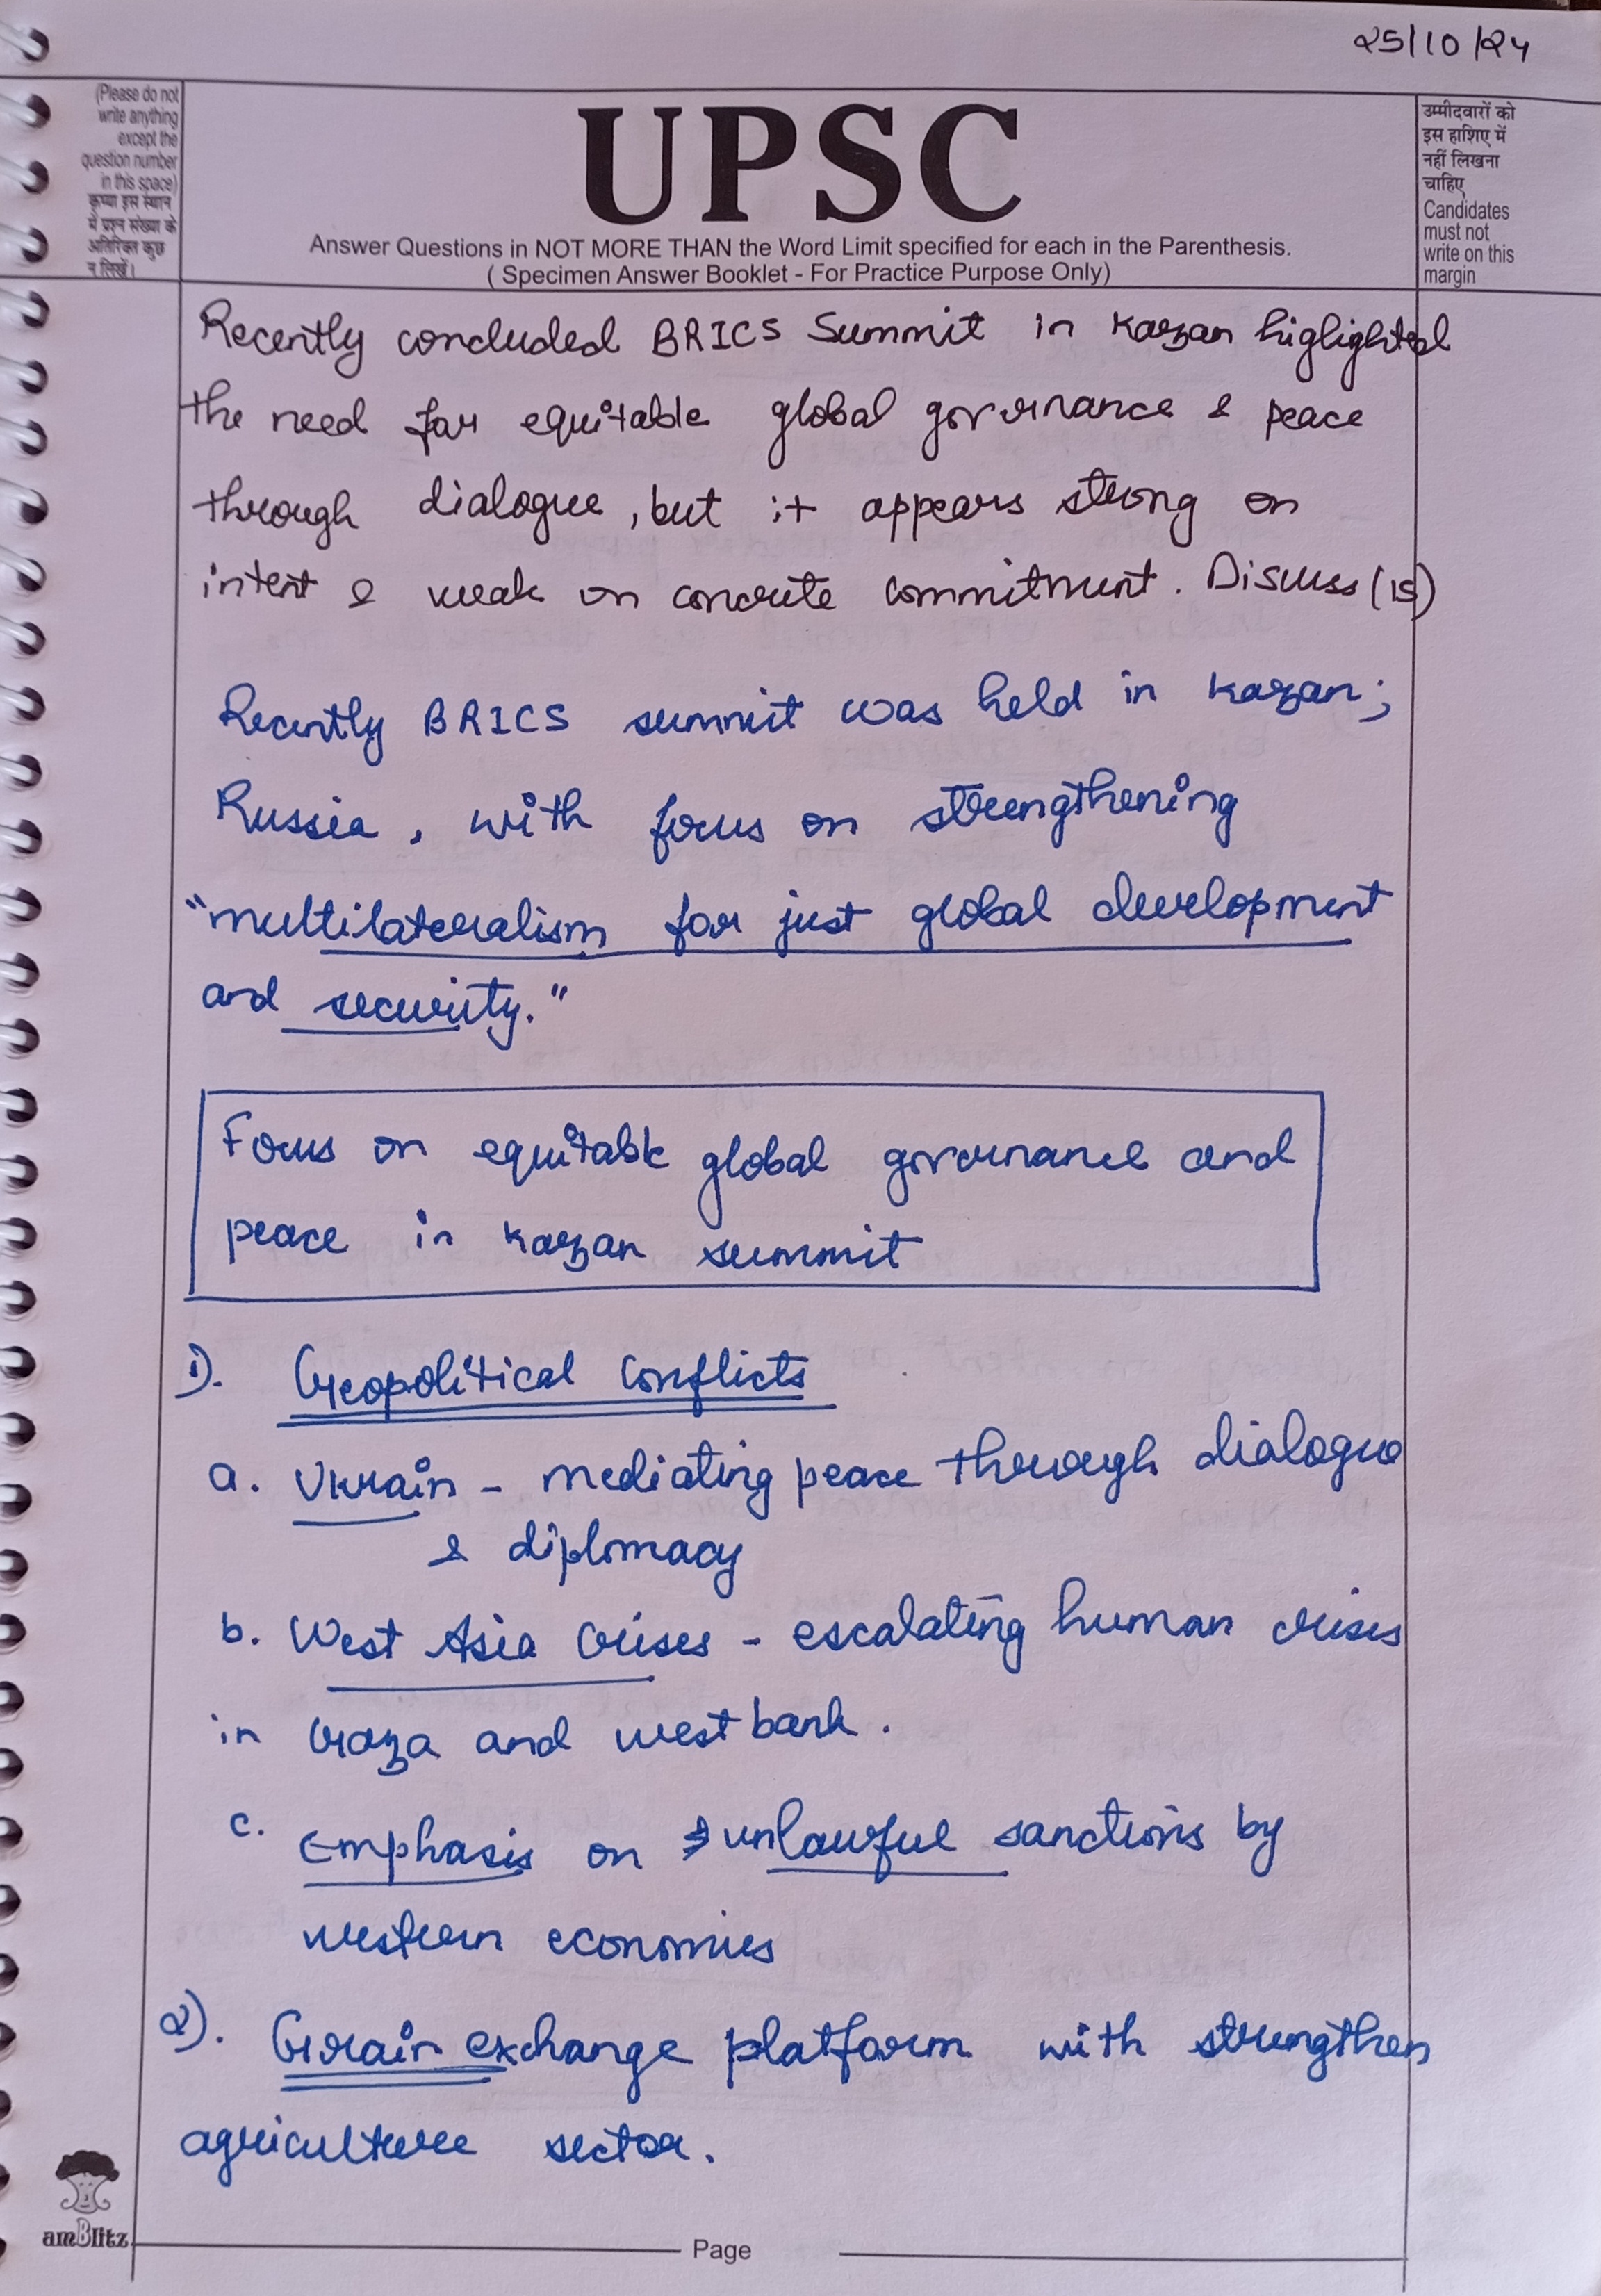 25/10/24
(Please do not
write anything
except the
question number
in this space)
कृप्या इस स्थान
में प्रश्न संख्या के
अतिरिक्त कुछ
न लिखें।
UPSC
Answer Questions in NOT MORE THAN the Word Limit specified for each in the Parenthesis.
( Specimen Answer Booklet - For Practice Purpose Only)
उम्मीदवारों को
इस हाशिए में
नहीं लिखना
चाहिए
Candidates
must not
write on this
margin
Recently concluded BRICS Summit in Kazan higlighted
the need for equitable global governance & peace
through dialogue, but it appears strong on
intent & weak on concrete commitment. Discuss (15)
Recently BRICS summit was held in Kazan;
Russia, with focus on strengthening
"multilateralism for just global development
and security."
Focus on equitable global governance and
peace in Kazan summit
1). Geopolitical Conflicts
a. Ukrain - mediating peace through dialogue
& diplomacy
b. West Asia Crises - escalating human crisis
in Gaza and west bank.
c. Emphasis on unlawful sanctions by
western economies
2). Grain exchange platform with strengthen
agriculture sector.
amBlitz
Page